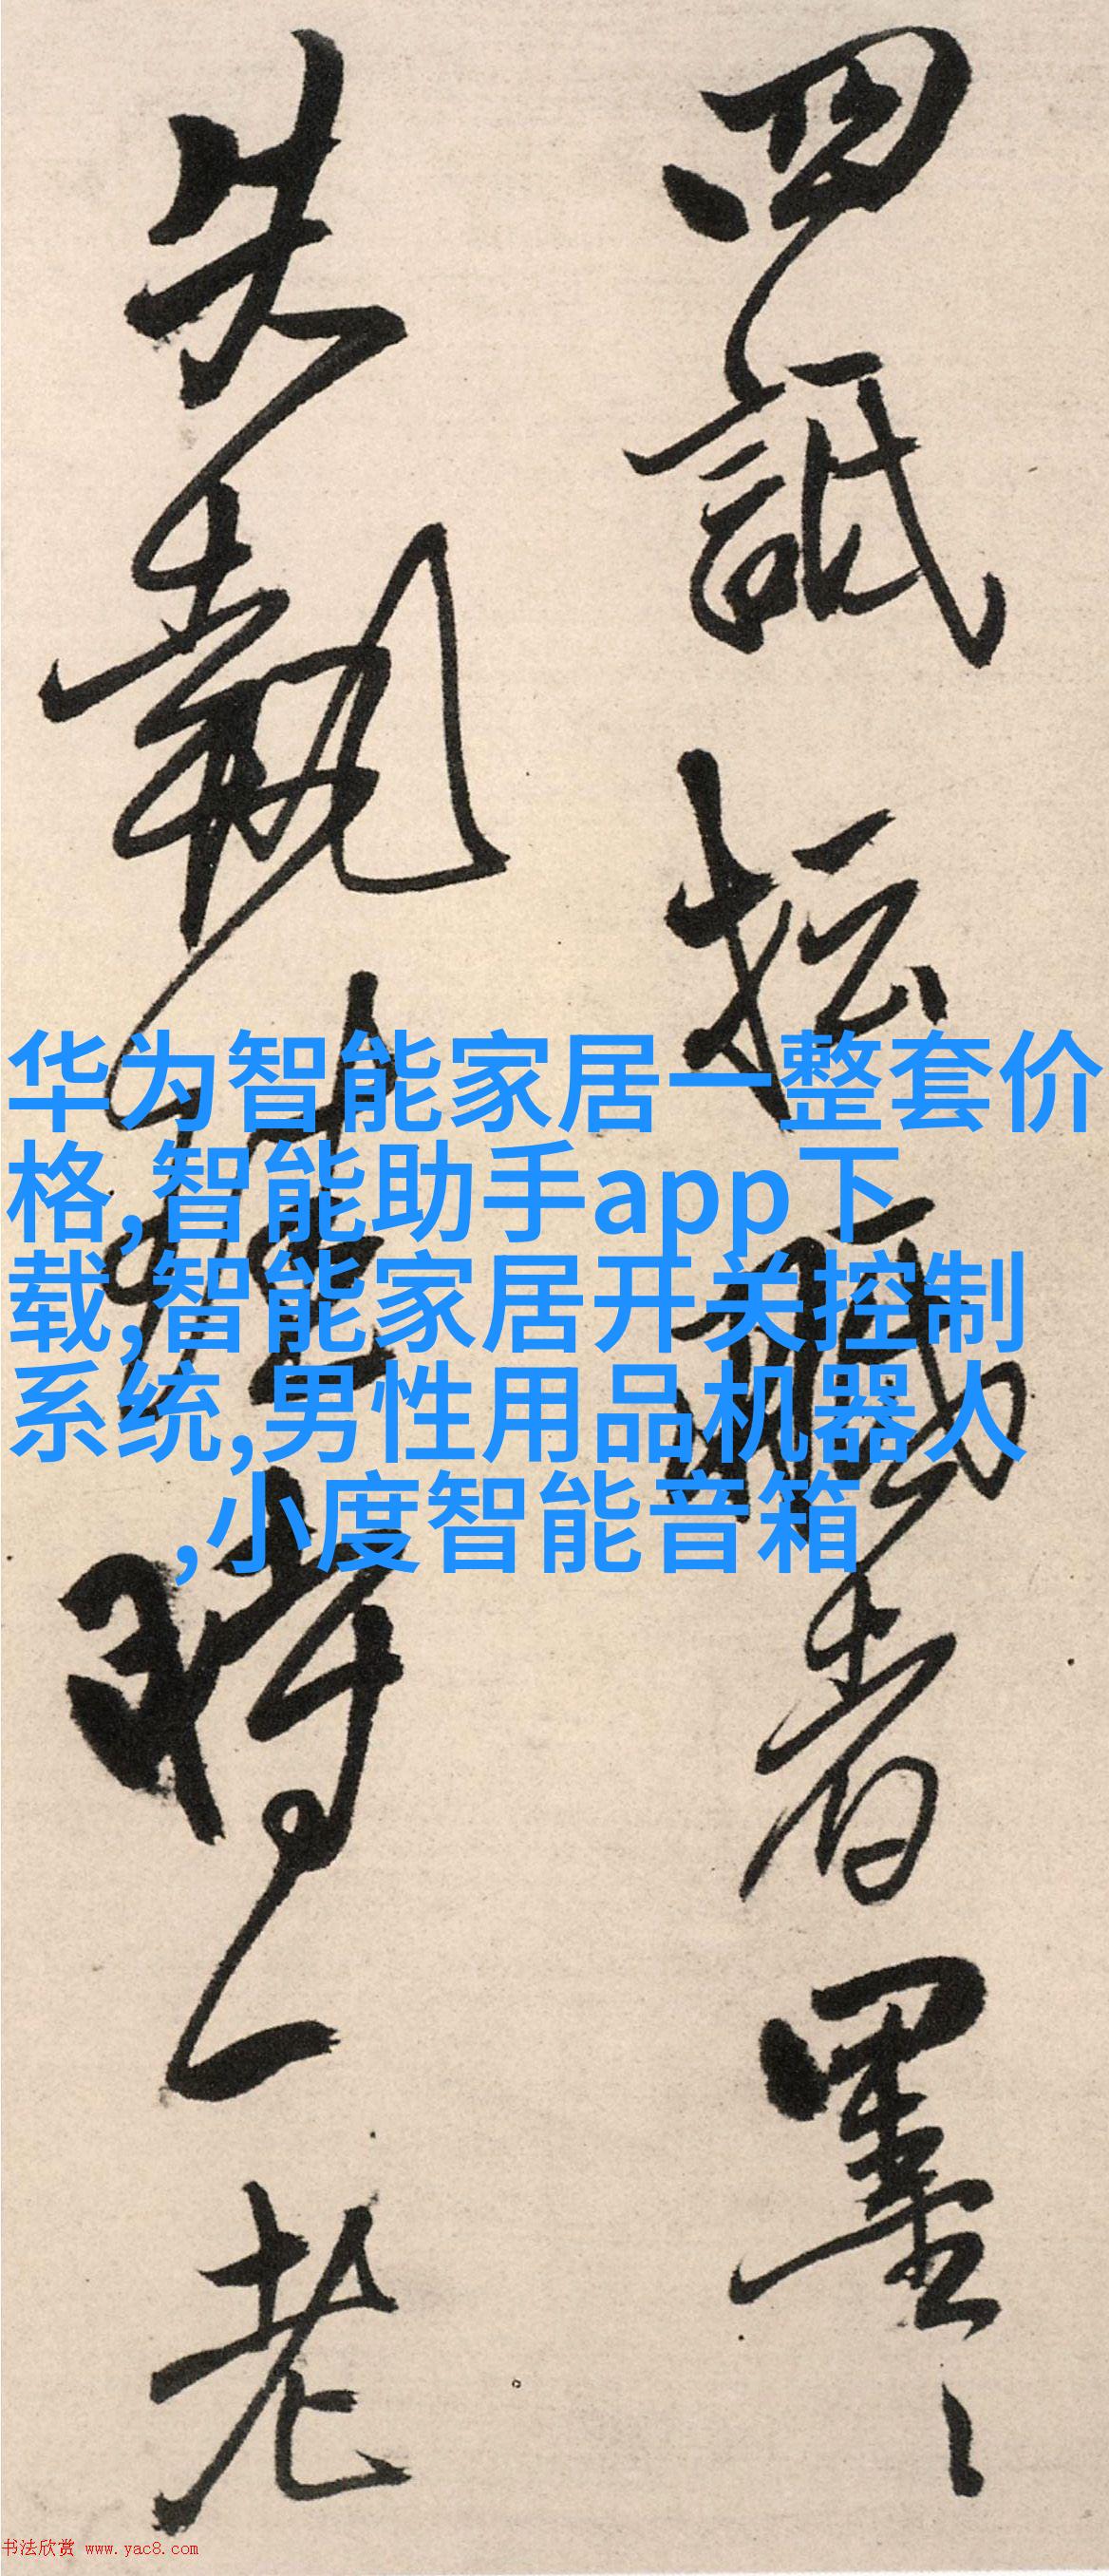 四詆坛職者墨〻
失執性時一老
华为智能家居一整套价
格,智能助手app下
载,智能家居开关控制
系统,男性用品机器人
,小度智能音箱
书法欣赏 www.yac8.com